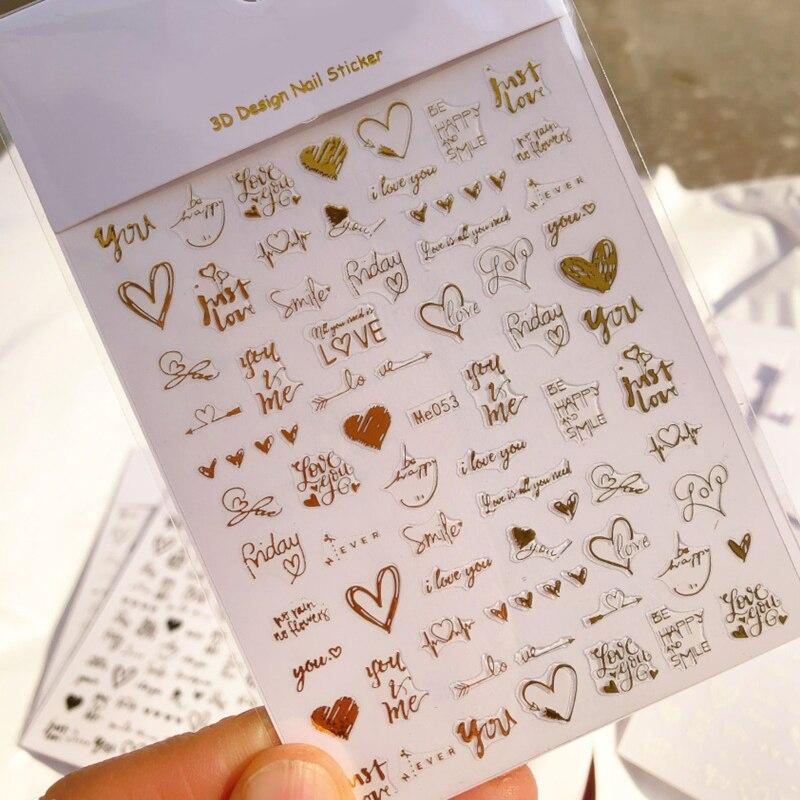 3D Design Nail Sticker
just
love
BE
HAPPY
AND
SMILE
no rain
no flowers
Love
You
i love you
NEVER
be
happy
you
you.
Love is all you need
you
Friday
Love
just
love
smile
All you need is
LOVE
love
Friday
you
you
&
me
lo ve
you
&
me
BE
HAPPY
AND
SMILE
just
love
Me053
Love
You
be
happy
i love you
Love is all you need
Love
Friday
NEVER
smile
you
love
be
happy
i love you
no rain
no flowers
you.
you
&
me
lo ve
Love
You
BE
HAPPY
AND
SMILE
Love
You
you
NEVER
just
love